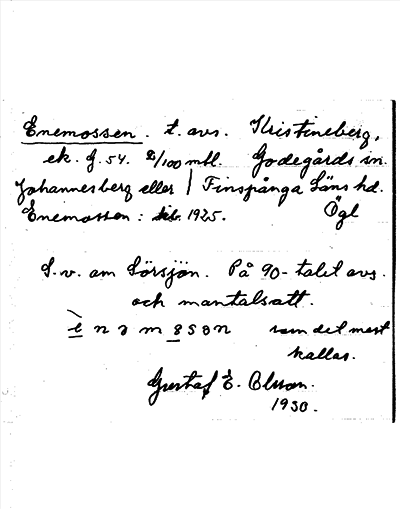 Enemossen. t. avs. Kristineberg,
ek. g. 54. 2/100 mtl. Godegårds sn.
Johannesberg eller / Finspånga Läns hd.
Enemossen: 1925. Ögl
S. v. om Sörsjön. På 90-talet avs.
och mantalsatt.
som det mest
kallas.
Gustaf E. Olsson.
1930.